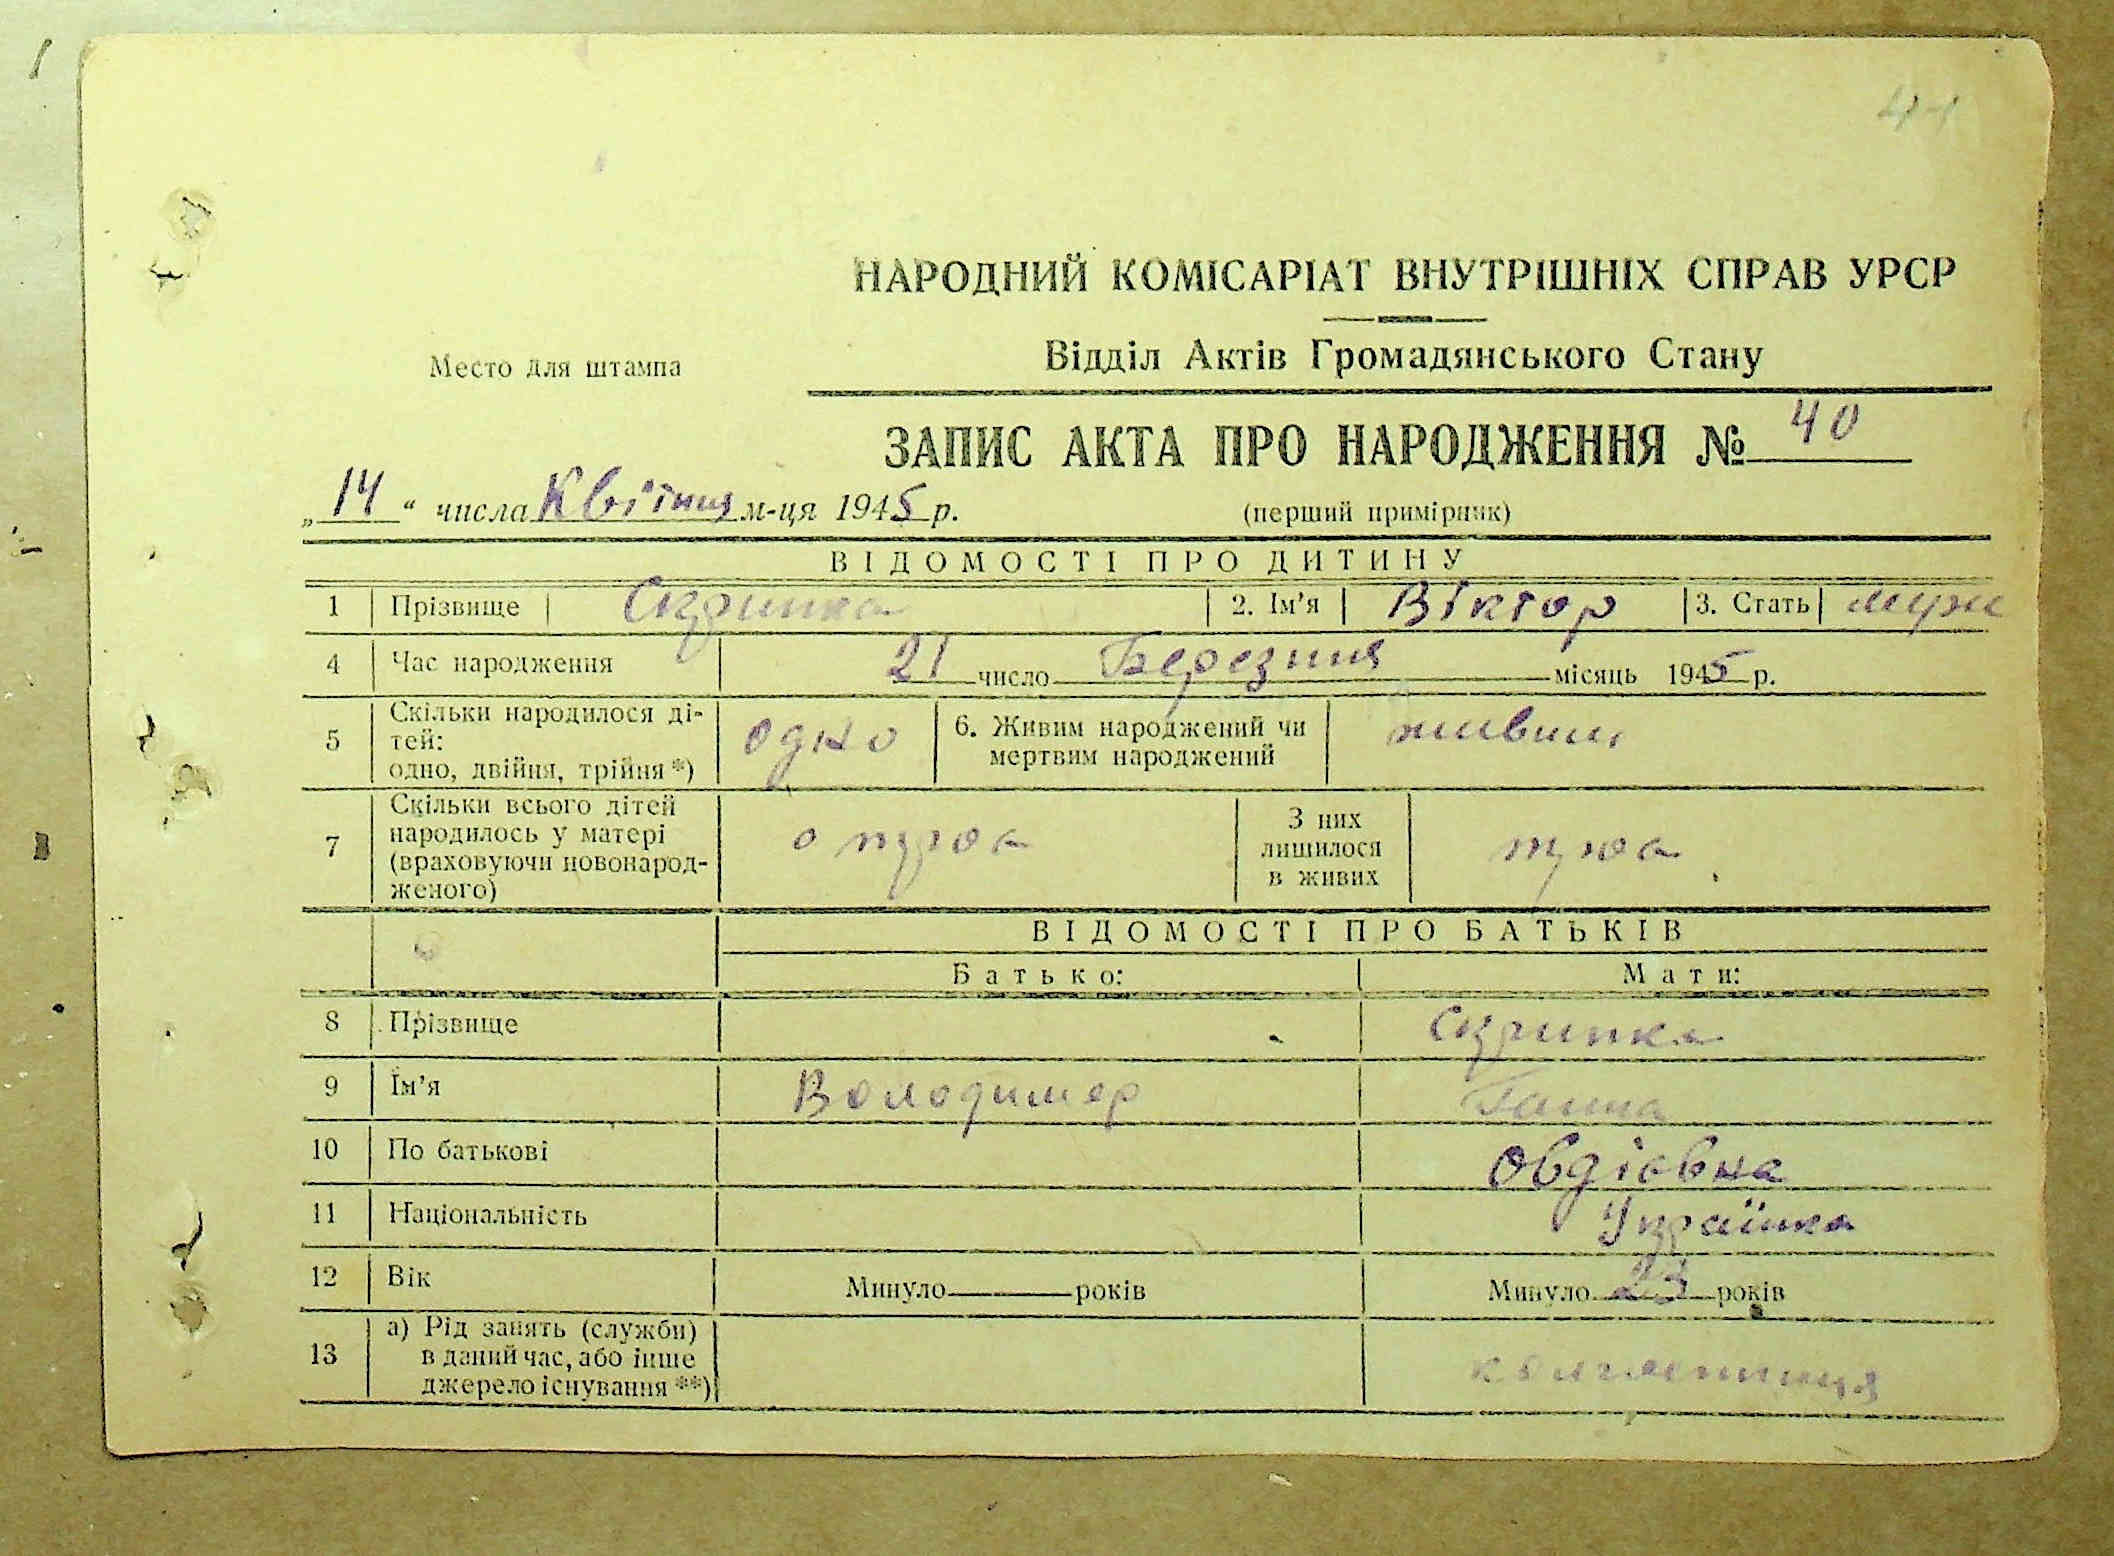 НАРОДНИЙ КОМІСАРІАТ ВНУТРІШНІХ СПРАВ УРСР
Место для штампа
Відділ Актів Громадянського Стану
ЗАПИС АКТА ПРО НАРОДЖЕННЯ № 40
„14“ числа Квітня м-ця 1945 р. (перший примірник)
ВІДОМОСТІ ПРО ДИТИНУ
1 Прізвище Скрипка 2. Ім'я Віктор 3. Стать муж
4 Час народження 21 число Березня місяць 1945 р.
5 Скільки народилося ді-
тей:
одно, двійня, трійня *) одно 6. Живим народжений чи
мертвим народжений живим
7 Скільки всього дітей
народилось у матері
(враховуючи новонарод-
женого)
З них
лишилося
в живих
ВІДОМОСТІ ПРО БАТЬКІВ
Батько: Мати:
8 Прізвище Скрипка
9 Ім'я Володимер Ганна
10 По батькові Овдіовна
11 Національність Українка
12 Вік Минуло років Минуло 23 років
13 а) Рід занять (служби)
в даний час, або інше
джерело існування **) колгоспниця